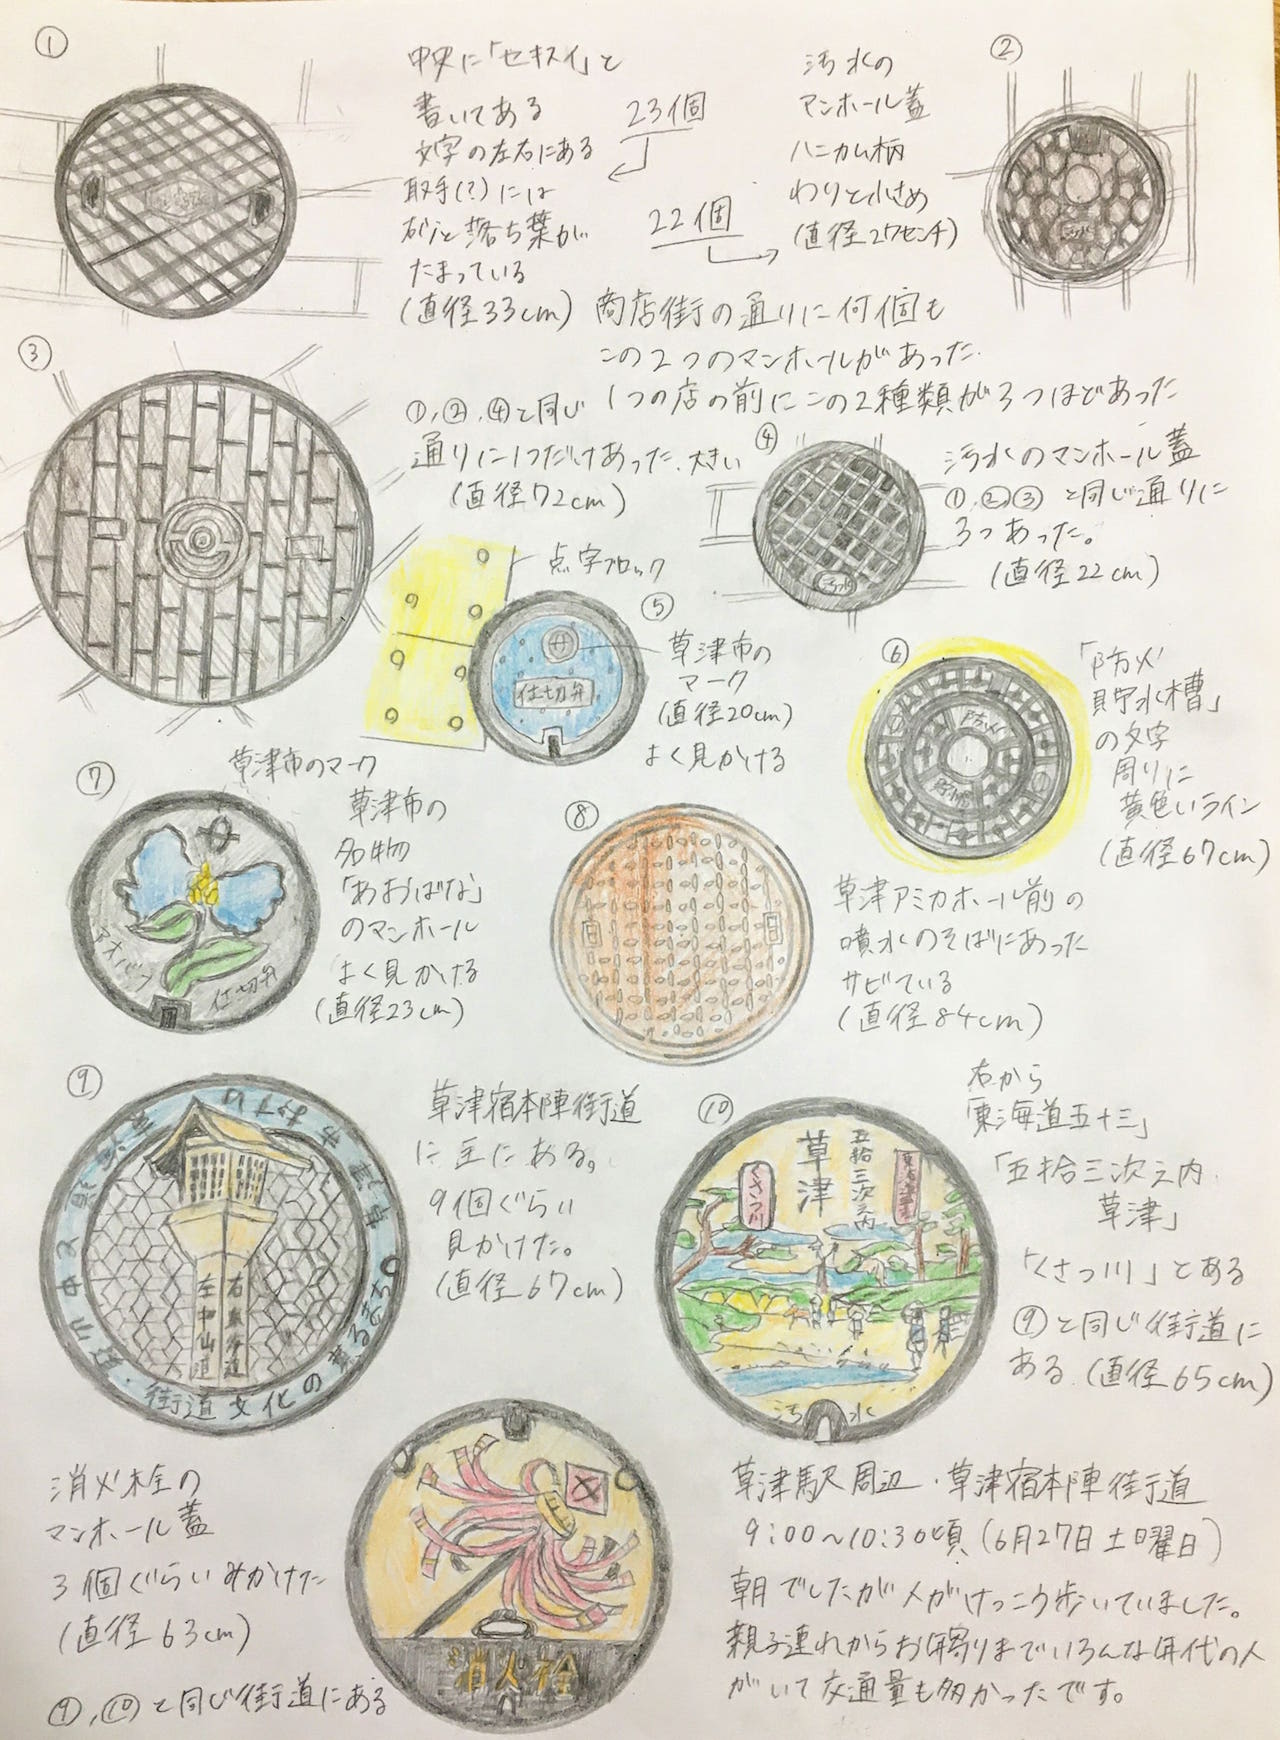 ①
中央に「セキスイ」と
書いてある
文字の左右にある
取手(?)には
砂と落ち葉が
たまっている
(直径33cm)
23個
22個
②
汚水の
マンホール蓋
ハニカム柄
わりと小さめ
(直径27センチ)
汚水
商店街の通りに何個も
この2つのマンホールがあった.
1つの店の前にこの2種類が3つほどあった
③
①,②,④と同じ
通りに1つだけあった.大きい
(直径72cm)
④
汚水のマンホール蓋
①,②,③と同じ通りに
3つあった。
(直径22cm)
汚水
点字ブロック
⑤
草津市の
マーク
(直径20cm)
よく見かける
仕切弁
⑥
「防火
貯水槽」
の文字
周りに
黄色いライン
(直径67cm)
防火
⑦
草津市のマーク
草津市の
名物
「あおばな」
のマンホール
よく見かける
(直径23cm)
アオバナ
仕切弁
⑧
草津アミカホール前の
噴水のそばにあった
サビている
(直径84cm)
⑨
草津宿本陣街道
に主にある。
9個ぐらい
見かけた。
(直径67cm)
右東海道
左中仙道
街道文化の
⑩
右から
「東海道五十三」
「五拾三次之内
草津」
「くさつ川」とある
⑨と同じ街道に
ある.(直径65cm)
五拾三次之内
草津
くさつ川
汚水
消火栓の
マンホール蓋
3個ぐらいみかけた
(直径63cm)
⑨,⑩と同じ街道にある
消火栓
草津駅周辺・草津宿本陣街道
9:00〜10:30頃(6月27日土曜日)
朝でしたが人がけっこう歩いていました。
親子連れからお年寄りまでいろんな年代の人
がいて交通量も多かったです。